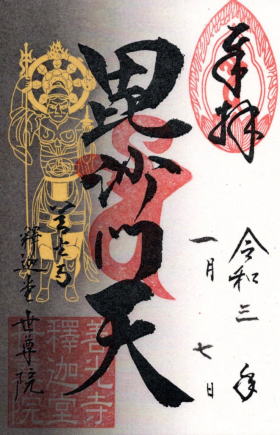 奉拝
令和三年
一月七日
毘沙門天
善光寺
釋迦堂世尊院
善光寺
釋迦堂
院